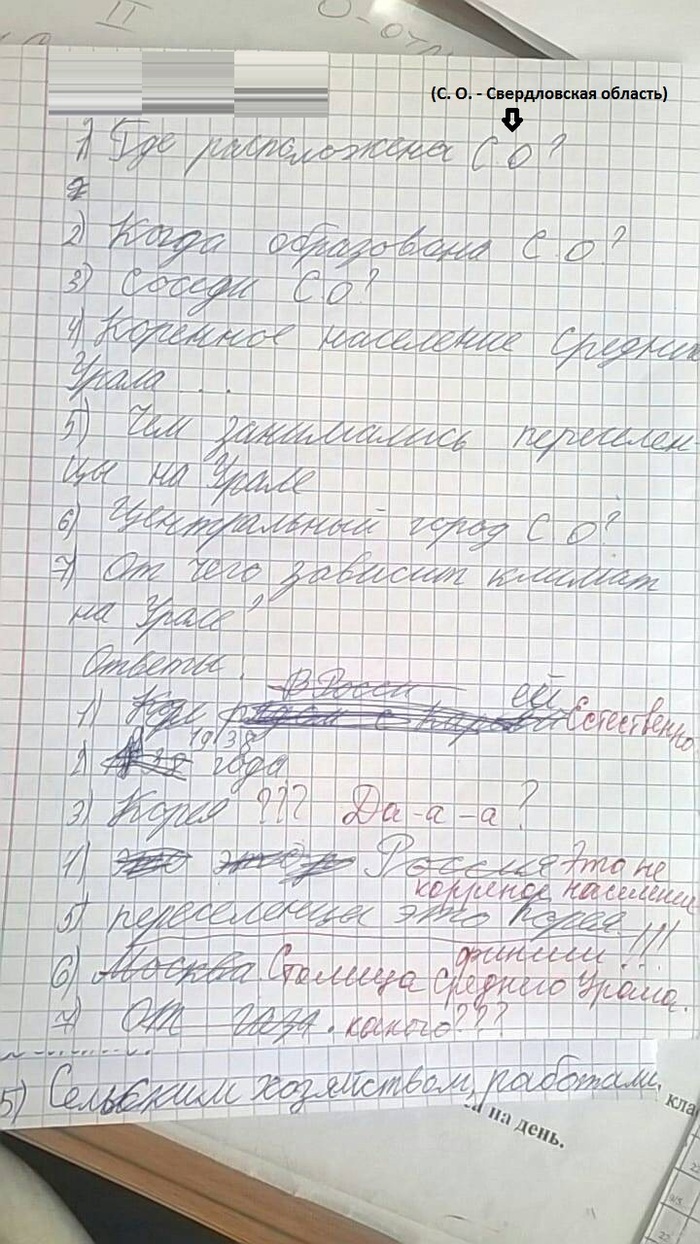 II
(С. О. - Свердловская область)
1) Где расположена С О?
2
2) Когда образована С. О?
3) Соседи С О?
4) Коренное население Средним
Урала . . .
5) Чем занимались переселен-
цы на Урале
6) Центральный город С О?
7) От чего зависит климат
на Урале?
Ответы.
В Росси ей
1) рядом с Естественно
1938
2) года
3) Корея ??? Да-а-а?
4) это Россия Это не
корреное население
5) переселенцы это Корея
финиш!!!
6) Москва Столица среднего Урала.
7) От газа. какого???
5) Сельским хозяйством, работали,
на день.
кла